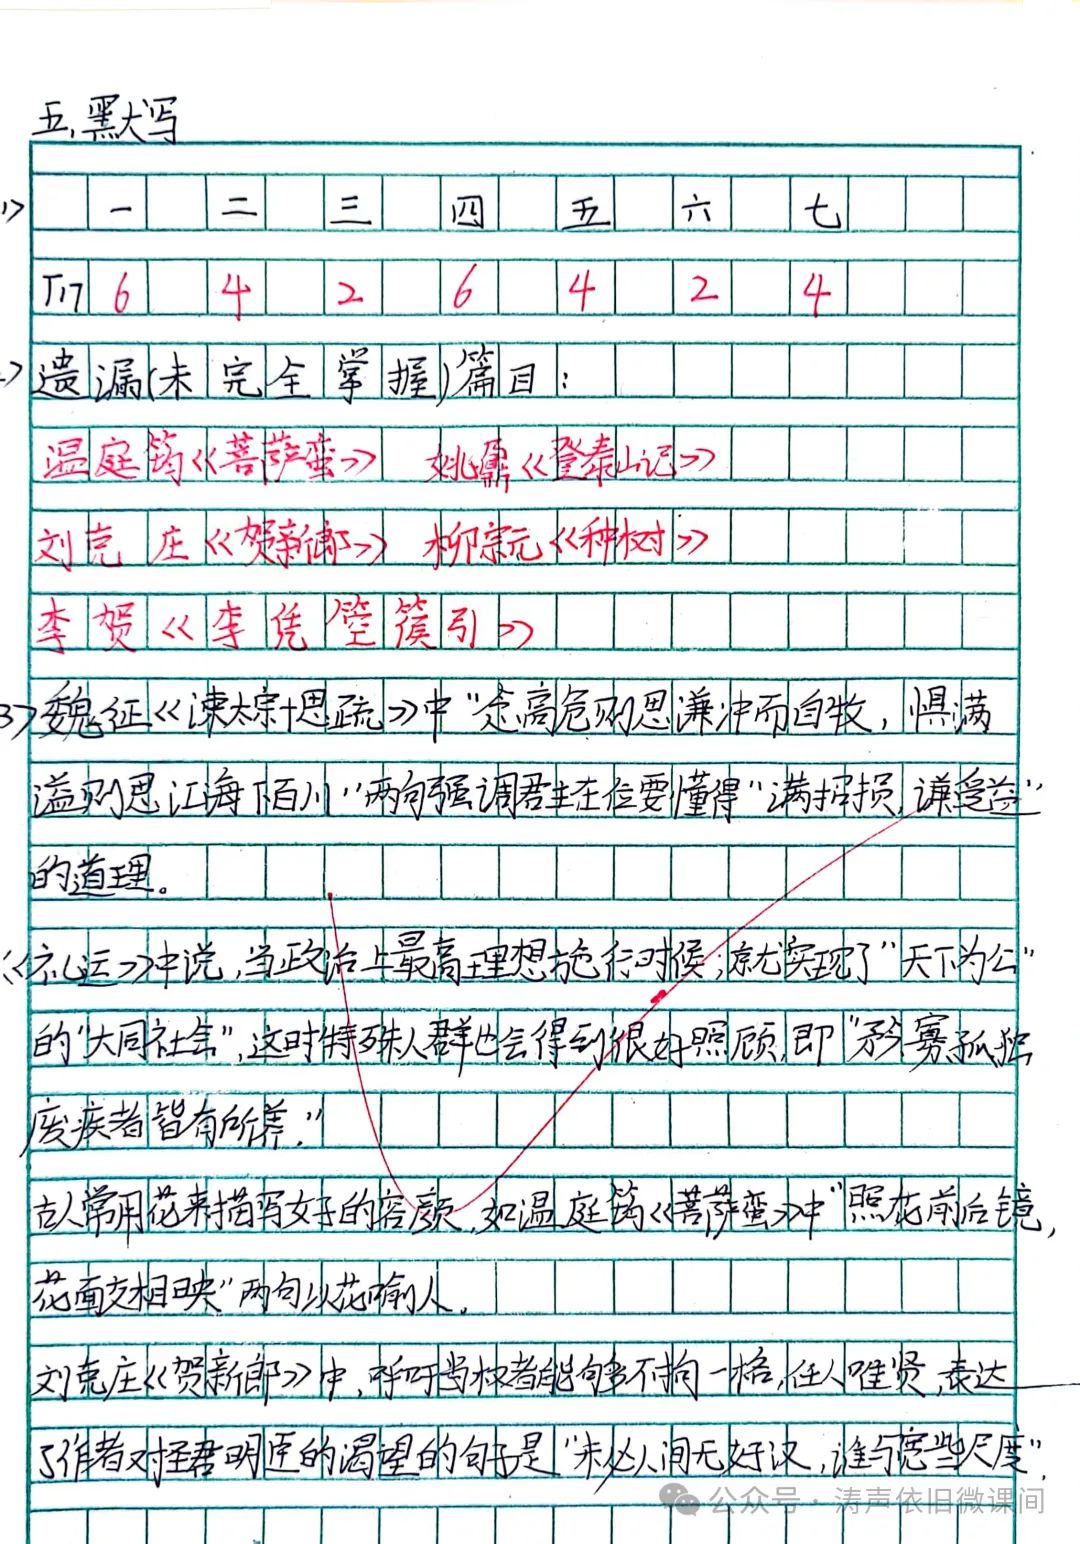 五、默写
1> 一 二 三 四 五 六 七
T17 6 4 2 6 4 2 4
2> 遗漏(未完全掌握)篇目:
温庭筠《菩萨蛮》 姚鼐《登泰山记》
刘克庄《贺新郎》 柳宗元《种树》
李贺《李凭箜篌引》
3> 魏征《谏太宗十思疏》中“念高危则思谦冲而自牧,惧满
溢则思江海下百川”两句强调君主在位要懂得“满招损,谦受益”
的道理。
《礼运》中说,当政治上最高理想施行时候,就实现了“天下为公”
的“大同社会”,这时特殊人群也会得到很好照顾,即“矜寡孤独
废疾者皆有所养.”
古人常用花来描写女子的容颜,如温庭筠《菩萨蛮》中“照花前后镜,
花面交相映”两句以花喻人.
刘克庄《贺新郎》中,呼吁当权者能够不拘一格,任人唯贤,表达
了作者对圣君明臣的渴望的句子是“未必人间无好汉,谁与宽些尺度”.
公众号·涛声依旧微课间